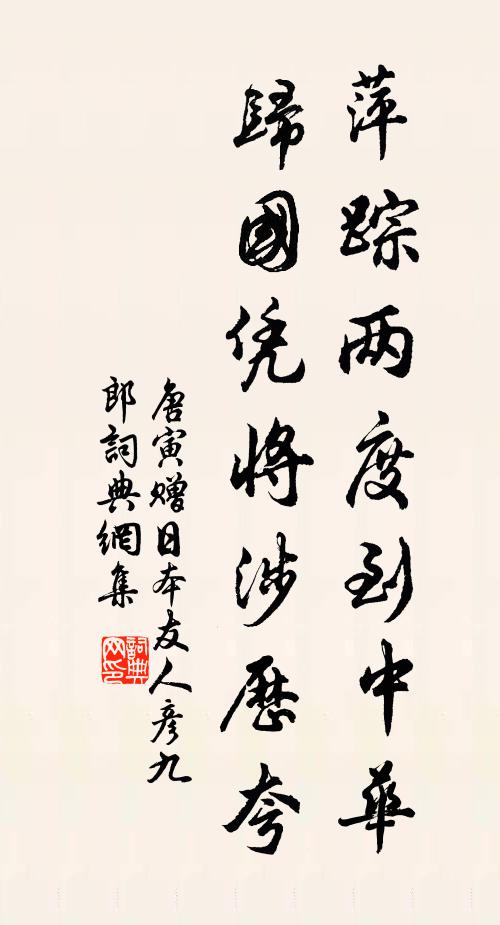 萍踪两度到中華
歸國凭將涉歷夸
唐寅贈日本友人彦九
郎詞典網集
詞典
网印